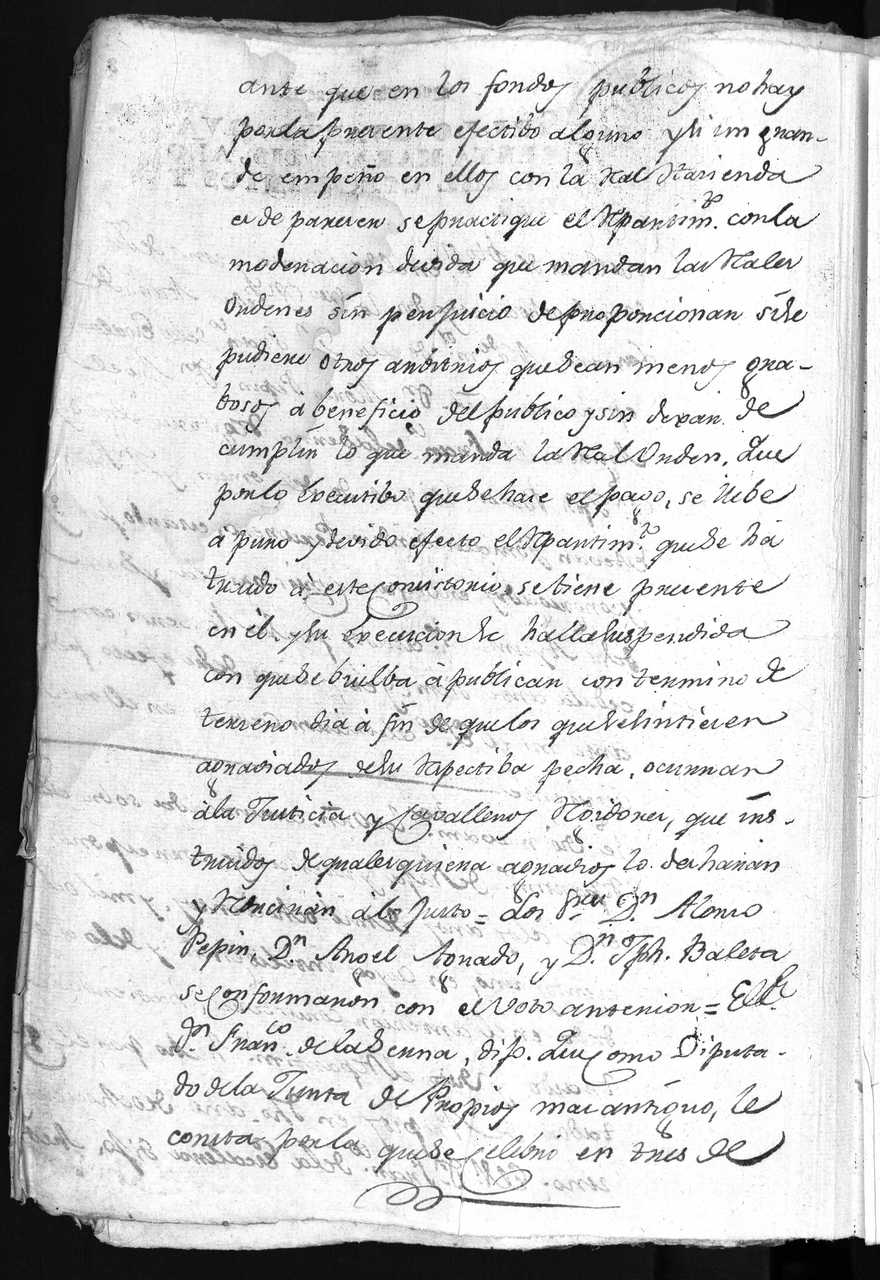 ante que en los fondos publicos no hay
por la presente efectibo alguno y si un gran-
de empeño en ellos con la Ral Hazienda
es de parecer se practique el Rpartimto. con la
moderacion devida que mandan las Rales
Ordenes sin perjuicio de proporcionar si se
pudiere otros arvitrios que sean menos gra-
bosos à beneficio del publico y sin dexar de
cumplir lo que manda la Ral Orden. Que
por lo executibo que se hace el pago, se llebe
a puro y devido efecto el Rpartimto. que se há
traido à este Consistorio, se tiene presente
en èl, y su execucion se halla suspendida
con que se buelba à publicar con termino de
tersero dia à fin de que los que se sintieren
agraviados de su respectiba pecha, ocurran
à la Justicia y Cavalleros Rexidores, que ins-
truidos de quales quiera agravios lo desharàn
y Rducirán à lo justo = Los Sres. Dn. Alonso
Pepin, Dn. Angel Aorado, y Dn. Jph. Balera
se Conformaron con el Voto anterior = El Sr.
Dn. Franco. de la Serna, dijo. Que como Diputa-
do de la Junta de Propios mas antiguo, le
consta por la que se Celebrò en tres de